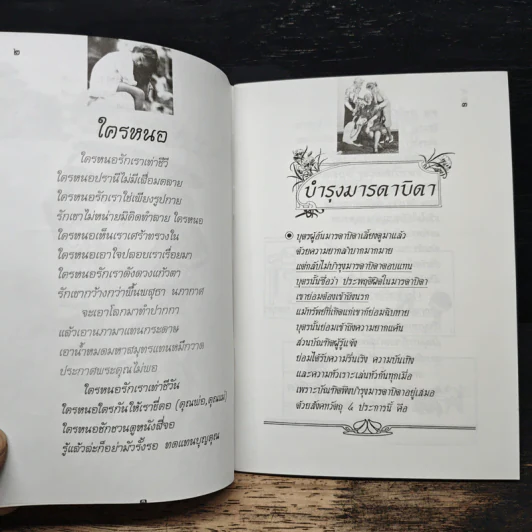 ๒
ใครหนอ
ใครหนอรักเราเท่าชีวี
ใครหนอปรานีไม่มีเสื่อมคลาย
ใครหนอรักเราใช่เพียงรูปกาย
รักเขาไม่หน่ายมิคิดทำลาย ใครหนอ
ใครหนอเห็นเราเศร้าทรวงใน
ใครหนอเอาใจปลอบเราเรื่อยมา
ใครหนอรักเราดังดวงแก้วตา
รักเขากว้างกว่าพื้นพสุธา นภากาศ
จะเอาโลกมาทำปากกา
แล้วเอานภามาแทนกระดาษ
เอาน้ำหมดมหาสมุทรแทนหมึกวาด
ประกาศพระคุณไม่พอ
ใครหนอรักเราเท่าชีวัน
ใครหนอใครกันให้เราขี่คอ (คุณพ่อ,คุณแม่)
ใครหนอชักชวนดูหนังสี่จอ
รู้แล้วล่ะก็อย่ามัวรั้งรอ ทดแทนบุญคุณ
บำรุงมารดาบิดา
บุตรผู้อันมารดาบิดาเลี้ยงดูมาแล้ว
ด้วยความยากลำบากมากมาย
แต่กลับไม่บำรุงมารดาบิดาตอบแทน
บุตรนั้นชื่อว่า ประพฤติผิดในมารดาบิดา
เขาย่อมต้องเข้าถึงนรก
แม้ทรัพย์ที่เกิดแก่เขาก็ย่อมฉิบหาย
บุตรนั้นย่อมเข้าถึงความยากแค้น
ส่วนบัณฑิตผู้รู้แจ้ง
ย่อมได้รับความรื่นเริง ความบันเทิง
และความหัวเราะเล่นหัวกันทุกเมื่อ
เพราะบัณฑิตพึงบำรุงมารดาบิดาอยู่เสมอ
ด้วยสังคหวัตถุ ๔ ประการนี้ คือ